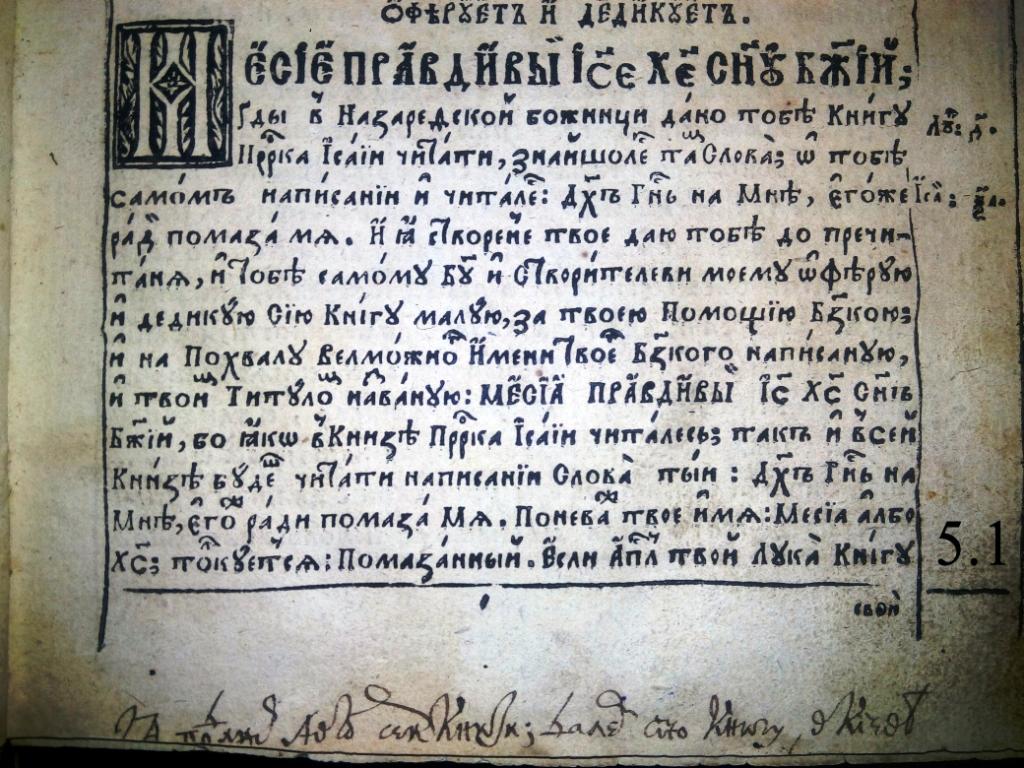 ѺФѢРУЕТЪ И ДЕДИКУЕТЪ.
МЕСІЕ ПРАВДИВЫЙ ІС҃Е ХЕ҃ СН҃У БЖ҃ІЙ;
Гды в Назаредской божници дано тобѣ Книгу Луⷦ: д҃.
Прⷪ҇рка Ісаіи читати, знайшолеⷭ҇ та Слова; ѿ тобѣ
самомъ написаніи и читалеⷭ҇: Дх҃ъ Гн҃ь на Мнѣ, егоже Ісаⷤ:
раⷣ помаза мя. И ꙗ Створеⷩ҇е твое даю тобѣ до пречи-
таня, и Тобѣ самому Бг҃у и Створителеви моему ѡфѣрую
и дедикую Сію Книгу малую, за твоею Помощію Бз҃кою;
и на Похвалу Велможноⷢ҇ Имени Твоеⷢ҇ Бз҃кого написаную,
и твоиⷨ Титулоⷨ названую: МЕСІА ПРАВДИВЫЙ ІС҃ ХС҃ СН҃Ъ
Бж҃ій, бо ꙗкѡ в Книзѣ Прⷪ҇рка Ісаіи читалесь; такъ и в сей
Книзѣ будеⷲ читати написаніи Слова тыи: Дх҃ъ Гн҃ь на
Мнѣ, егоⷤ ради помаза Мя. Поневаⷤ твое имя: Месіа албо
Хс҃; толкуется: Помазанный. Если Апⷭ҇лъ твой Лука Книгу 5.1
свой
сію Книгу,